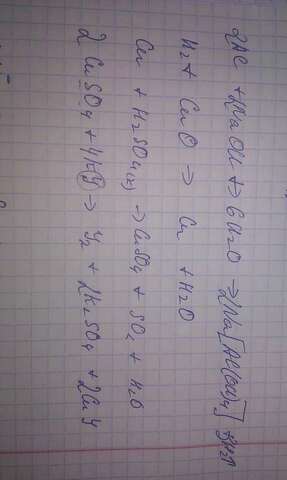 2Al + 2NaOH + 6H2O → 2Na[Al(OH)4] + 3H2↑
H2 + CuO → Cu + H2O
Cu + H2SO4(к) → CuSO4 + SO2 + H2O
2CuSO4 + 4KY → Y2 + 2K2SO4 + 2CuY